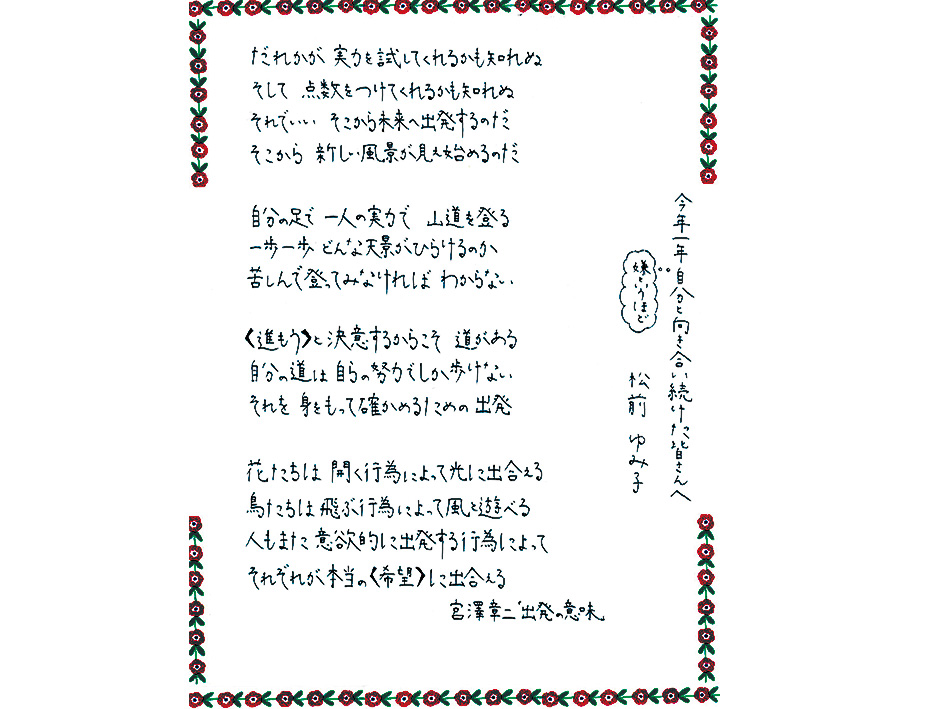 今年一年自分と向き合い続けた皆さんへ
嫌というほど
松前 ゆみ子
だれかが 実力を試してくれるかも知れぬ
そして 点数をつけてくれるかも知れぬ
それでいい そこから未来へ出発するのだ
そこから 新しい風景が見え始めるのだ
自分の足で 一人の実力で 山道を登る
一歩一歩 どんな天景がひらけるのか
苦しんで登ってみなければ わからない
〈進もう〉と決意するからこそ 道がある
自分の道は 自らの努力でしか歩けない
それを 身をもって確かめるための出発
花たちは 開く行為によって光に出合える
鳥たちは 飛ぶ行為によって風と遊べる
人もまた 意欲的に出発する行為によって
それぞれが本当の〈希望〉に出合える
宮澤章二“出発の意味